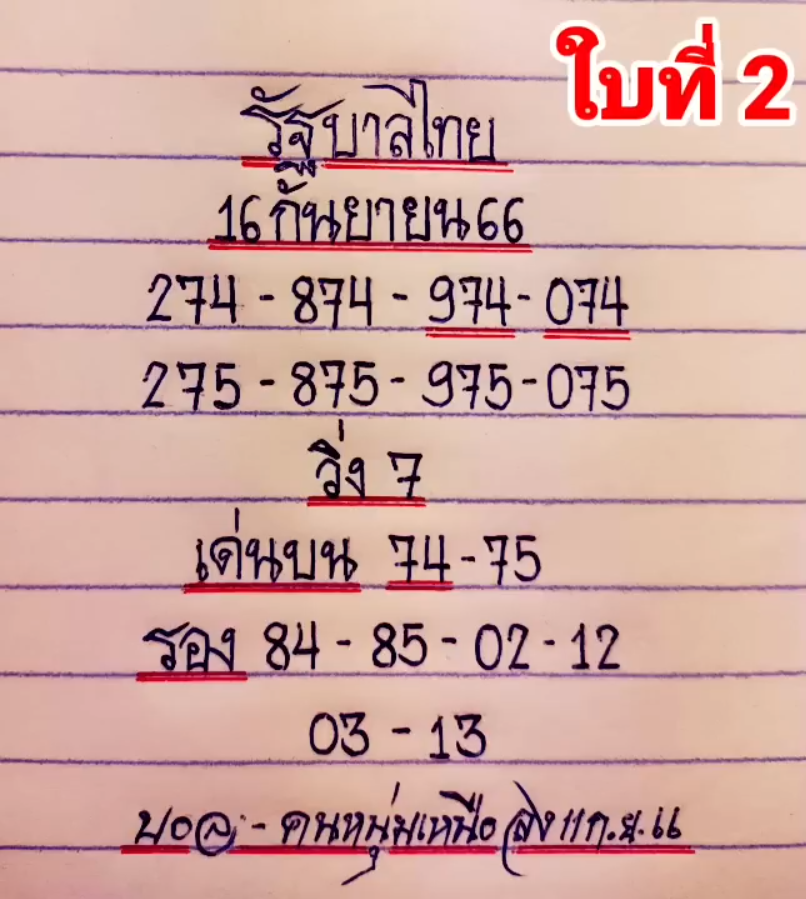 ใบที่ 2
รัฐบาลไทย
16 กันยายน 66
274 - 874 - 974 - 074
275 - 875 - 975 - 075
วิ่ง 7
เด่นบน 74 - 75
รอง 84 - 85 - 02 - 12
03 - 13
- คนหนุ่มเหนือ 11 ก.ย. 66